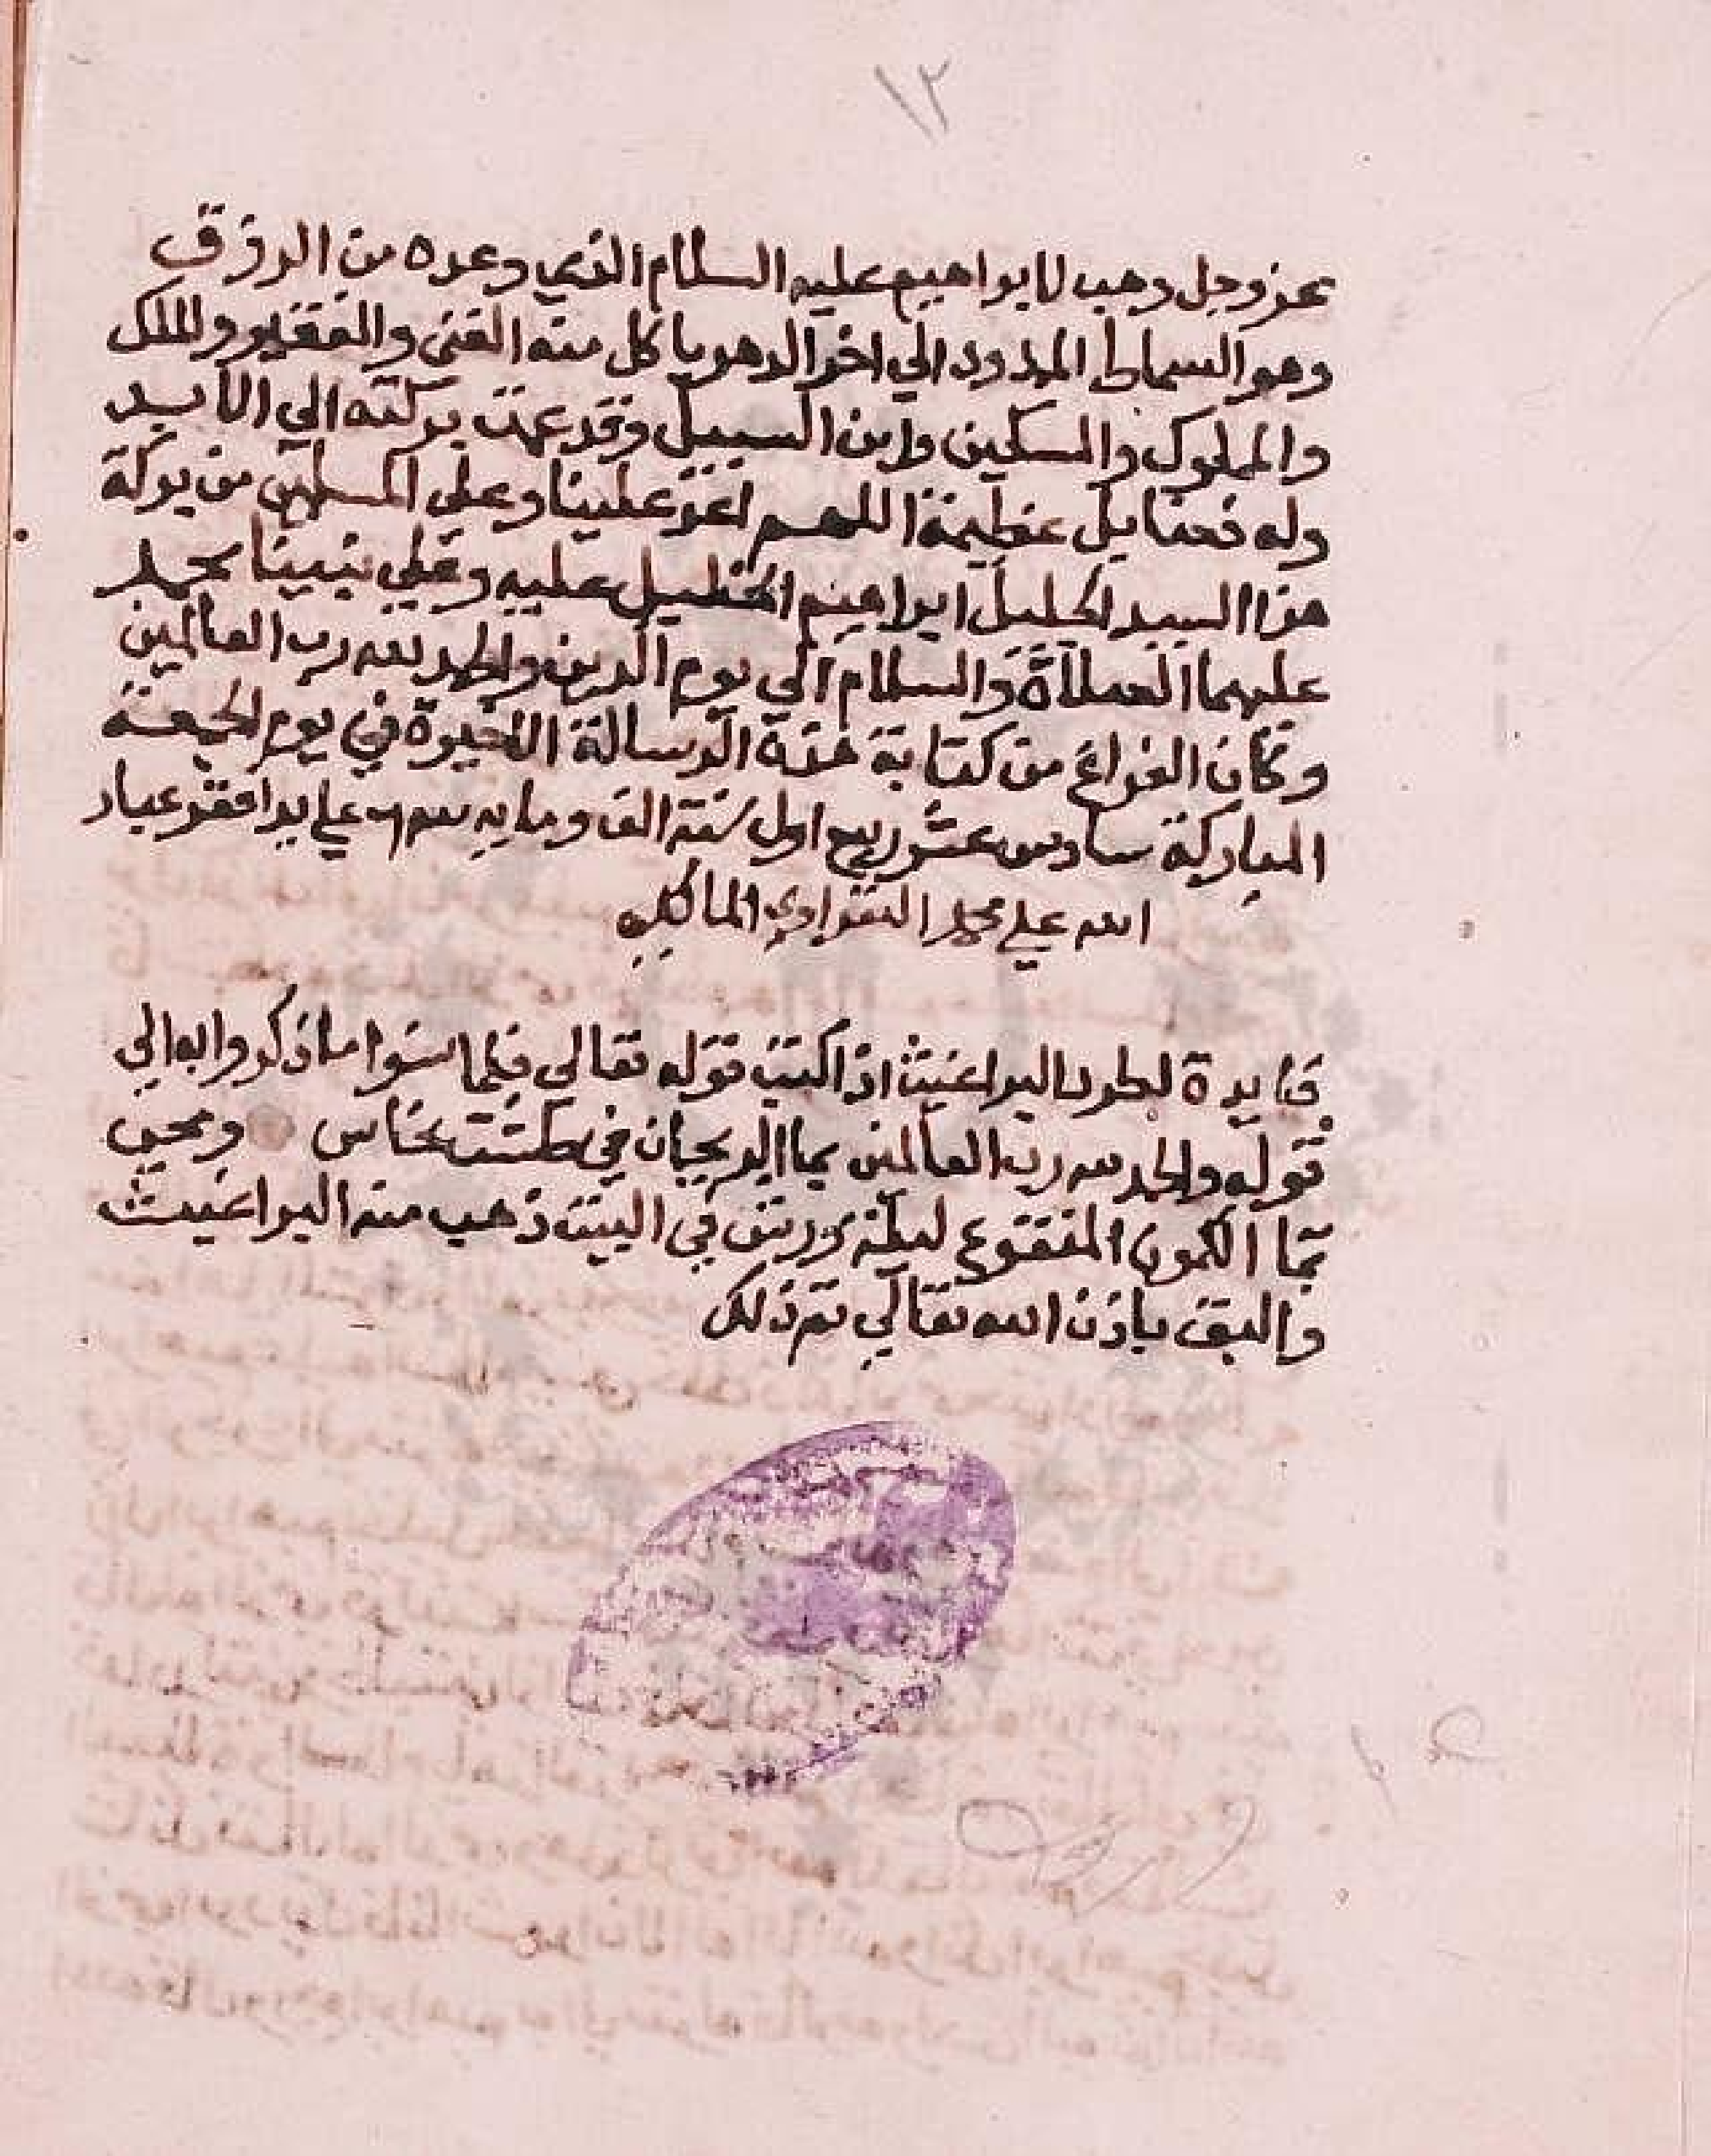 ١٢
عز وجل وهب لابراهيم عليه السلام الذي وعده من الرزق
وهو السماط الممدود الي اخر الدهر ياكل منه الغني والفقير والملك
والمملوك والمسكين وابن السبيل وقد عمت بركته الي الأبد
وله فضايل عظيمة اللهم اعد علينا وعلي المسلمين من بركة
هذا السيد الجليل ابراهيم الخليل عليه وعلي نبينا محمد
عليهما الصلاة والسلام الي يوم الدين والحمد لله رب العالمين
وكان الفراغ من كتابة هذه الرسالة الاخيرة في يوم الجمعة
المباركة سادس عشر ربيع اول سنة الف وماية علي يد افقر عباد
الله علي محمد النفراوي المالكي
فايدة لطرد البراغيث اذا كتبت قوله تعالي فلما نسوا ما ذكروا به الي
قوله والحمد لله رب العالمين بما الريحان في طشت نحاس ومحي
بما الكمون المنقوع ليلة ورش في البيت ذهب منه البراغيث
والبق باذن الله تعالي تم ذلك